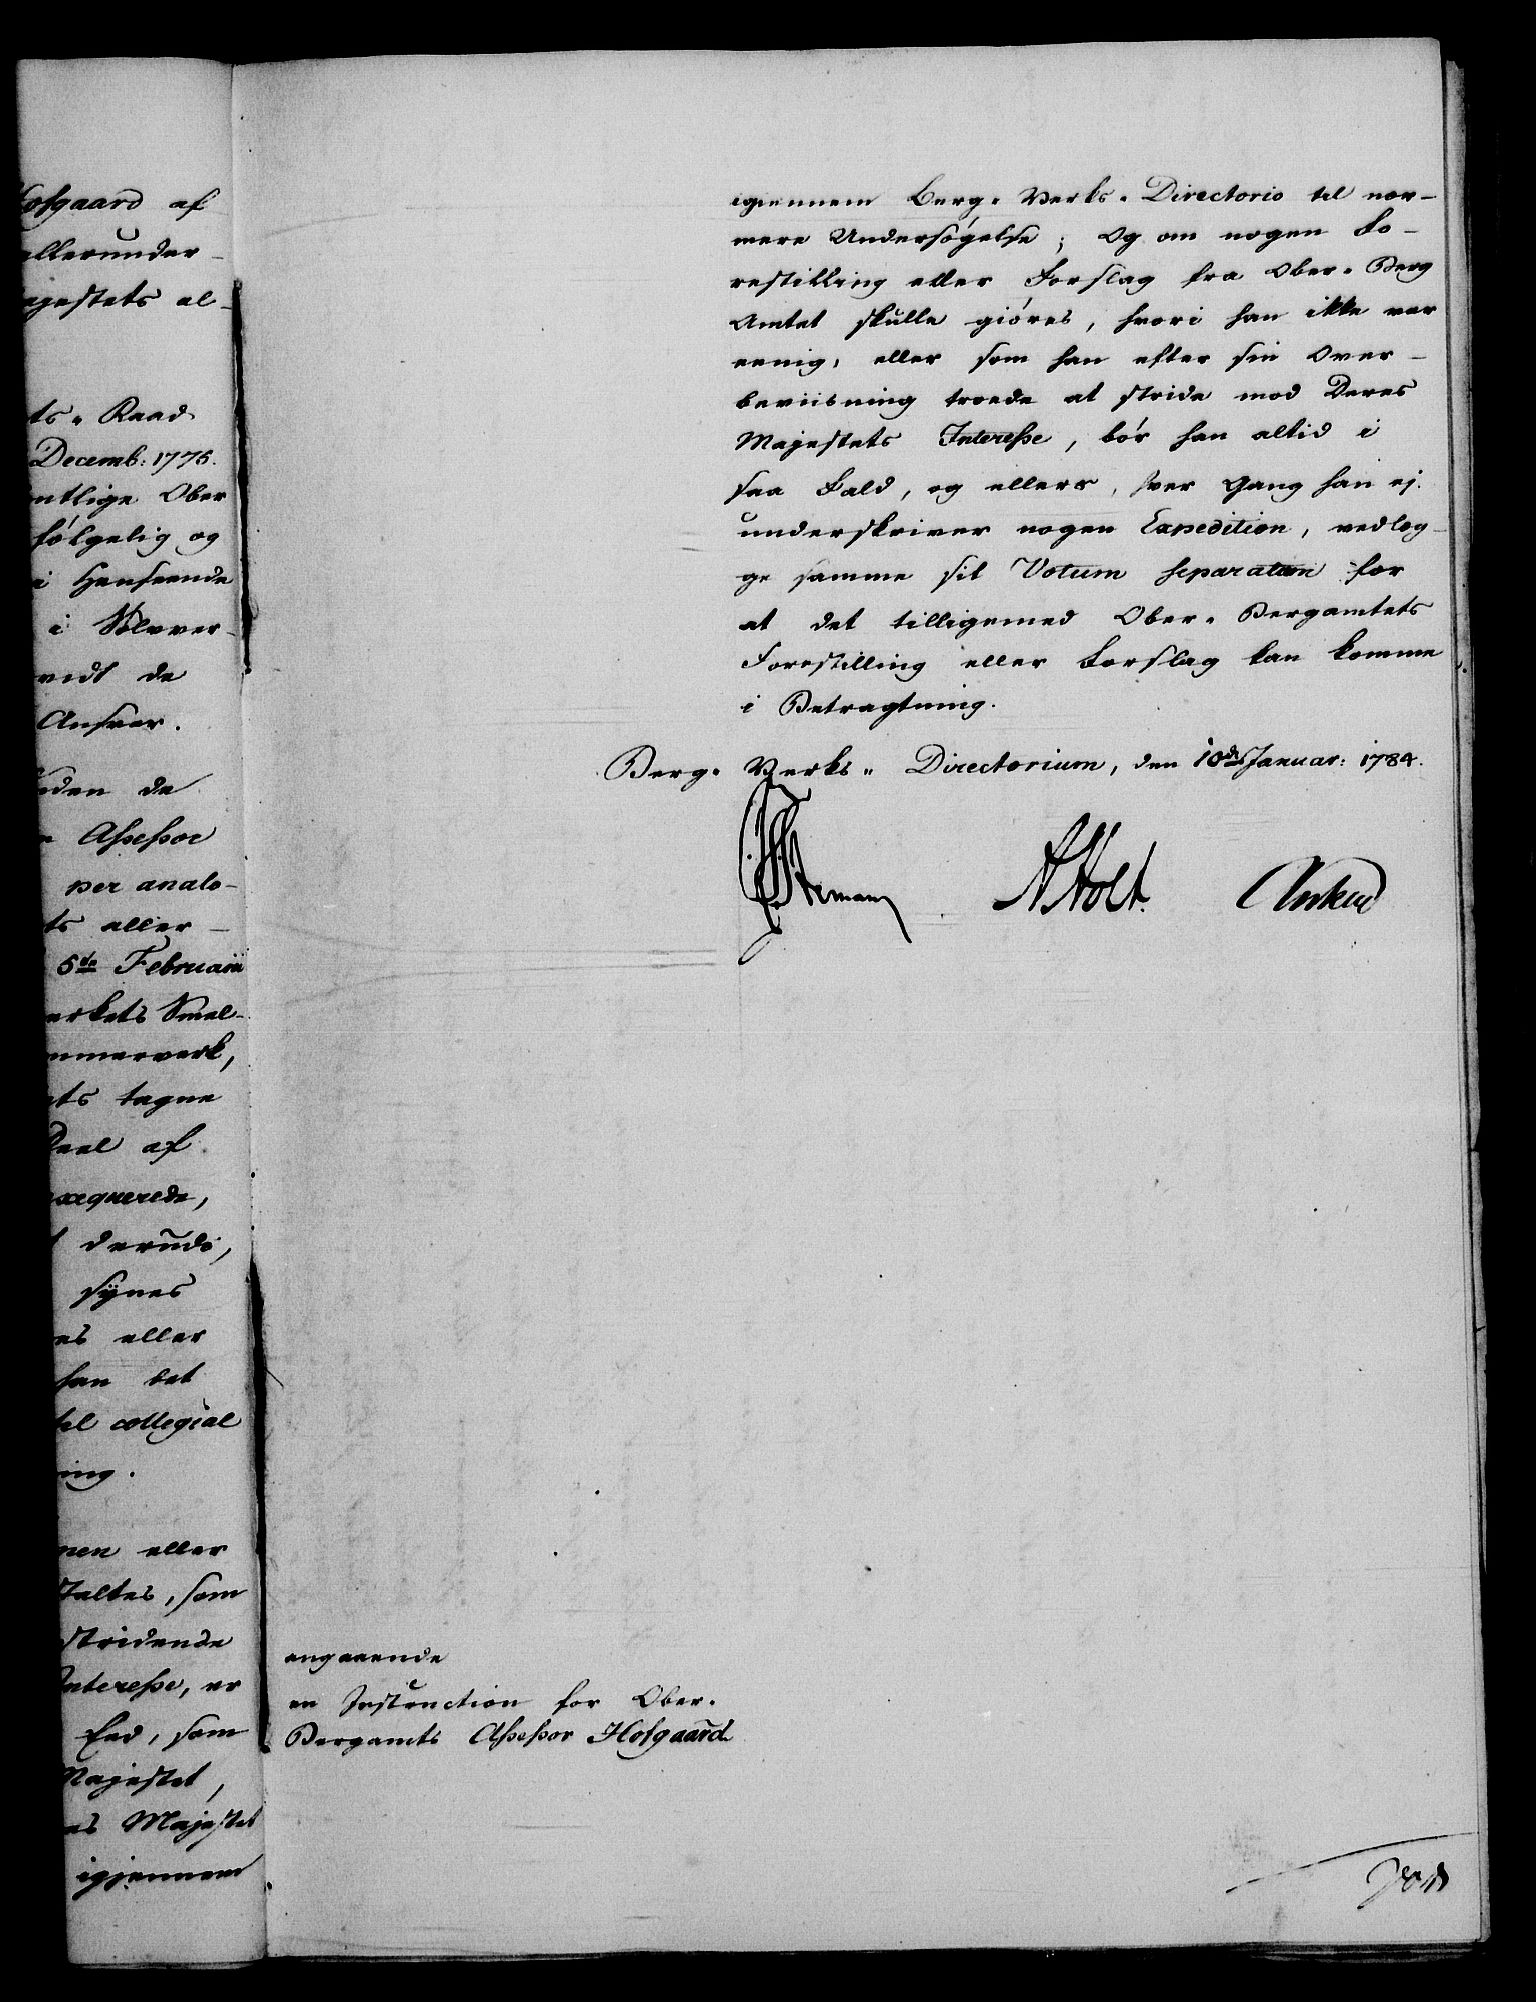 Hofgaard af
allerunder-
ajestets al-
ts- Raad
Decemb: 1775.
ntlige Ober
følgelig og
i Henseende
i Sølvver-
vidt de
Ansvar.
den de
Assessor
per analo-
ts aller-
5te Februarii
erkets Smel-
mmerverk,
ts tagne
Deel af
exequerede,
derudi,
synes
es eller
han det
til collegial
ing.
nen eller
staltes, som
stridende
Interesse, er
Eed, som
Majestet,
es Majestet
igjennem
igiennem Berg-Verks-Directorio til nær-
mere Undersøgelse; Og om nogen Fo-
restilling eller Forslag fra Ober-Berg
Amtet skulle giøres, hvori han ikke var
eenig, eller som han efter sin Over-
beviisning troede at stride mod Deres
Majestets Interesse, bør han altid i
saa Fald, og ellers, hver Gang han ej
underskriver nogen Expedition, vedleg-
ge samme sit Votum separatum for
at det tilligemed Ober-Bergamtets
Forestilling eller Forslag kan komme
i Betragtning.
Berg-Verks-Directorium, den 10de Januar: 1784.
Stemann NHolt. Anker
angaaende
en Instruction for Ober-
Bergamts Assessor Hofgaard